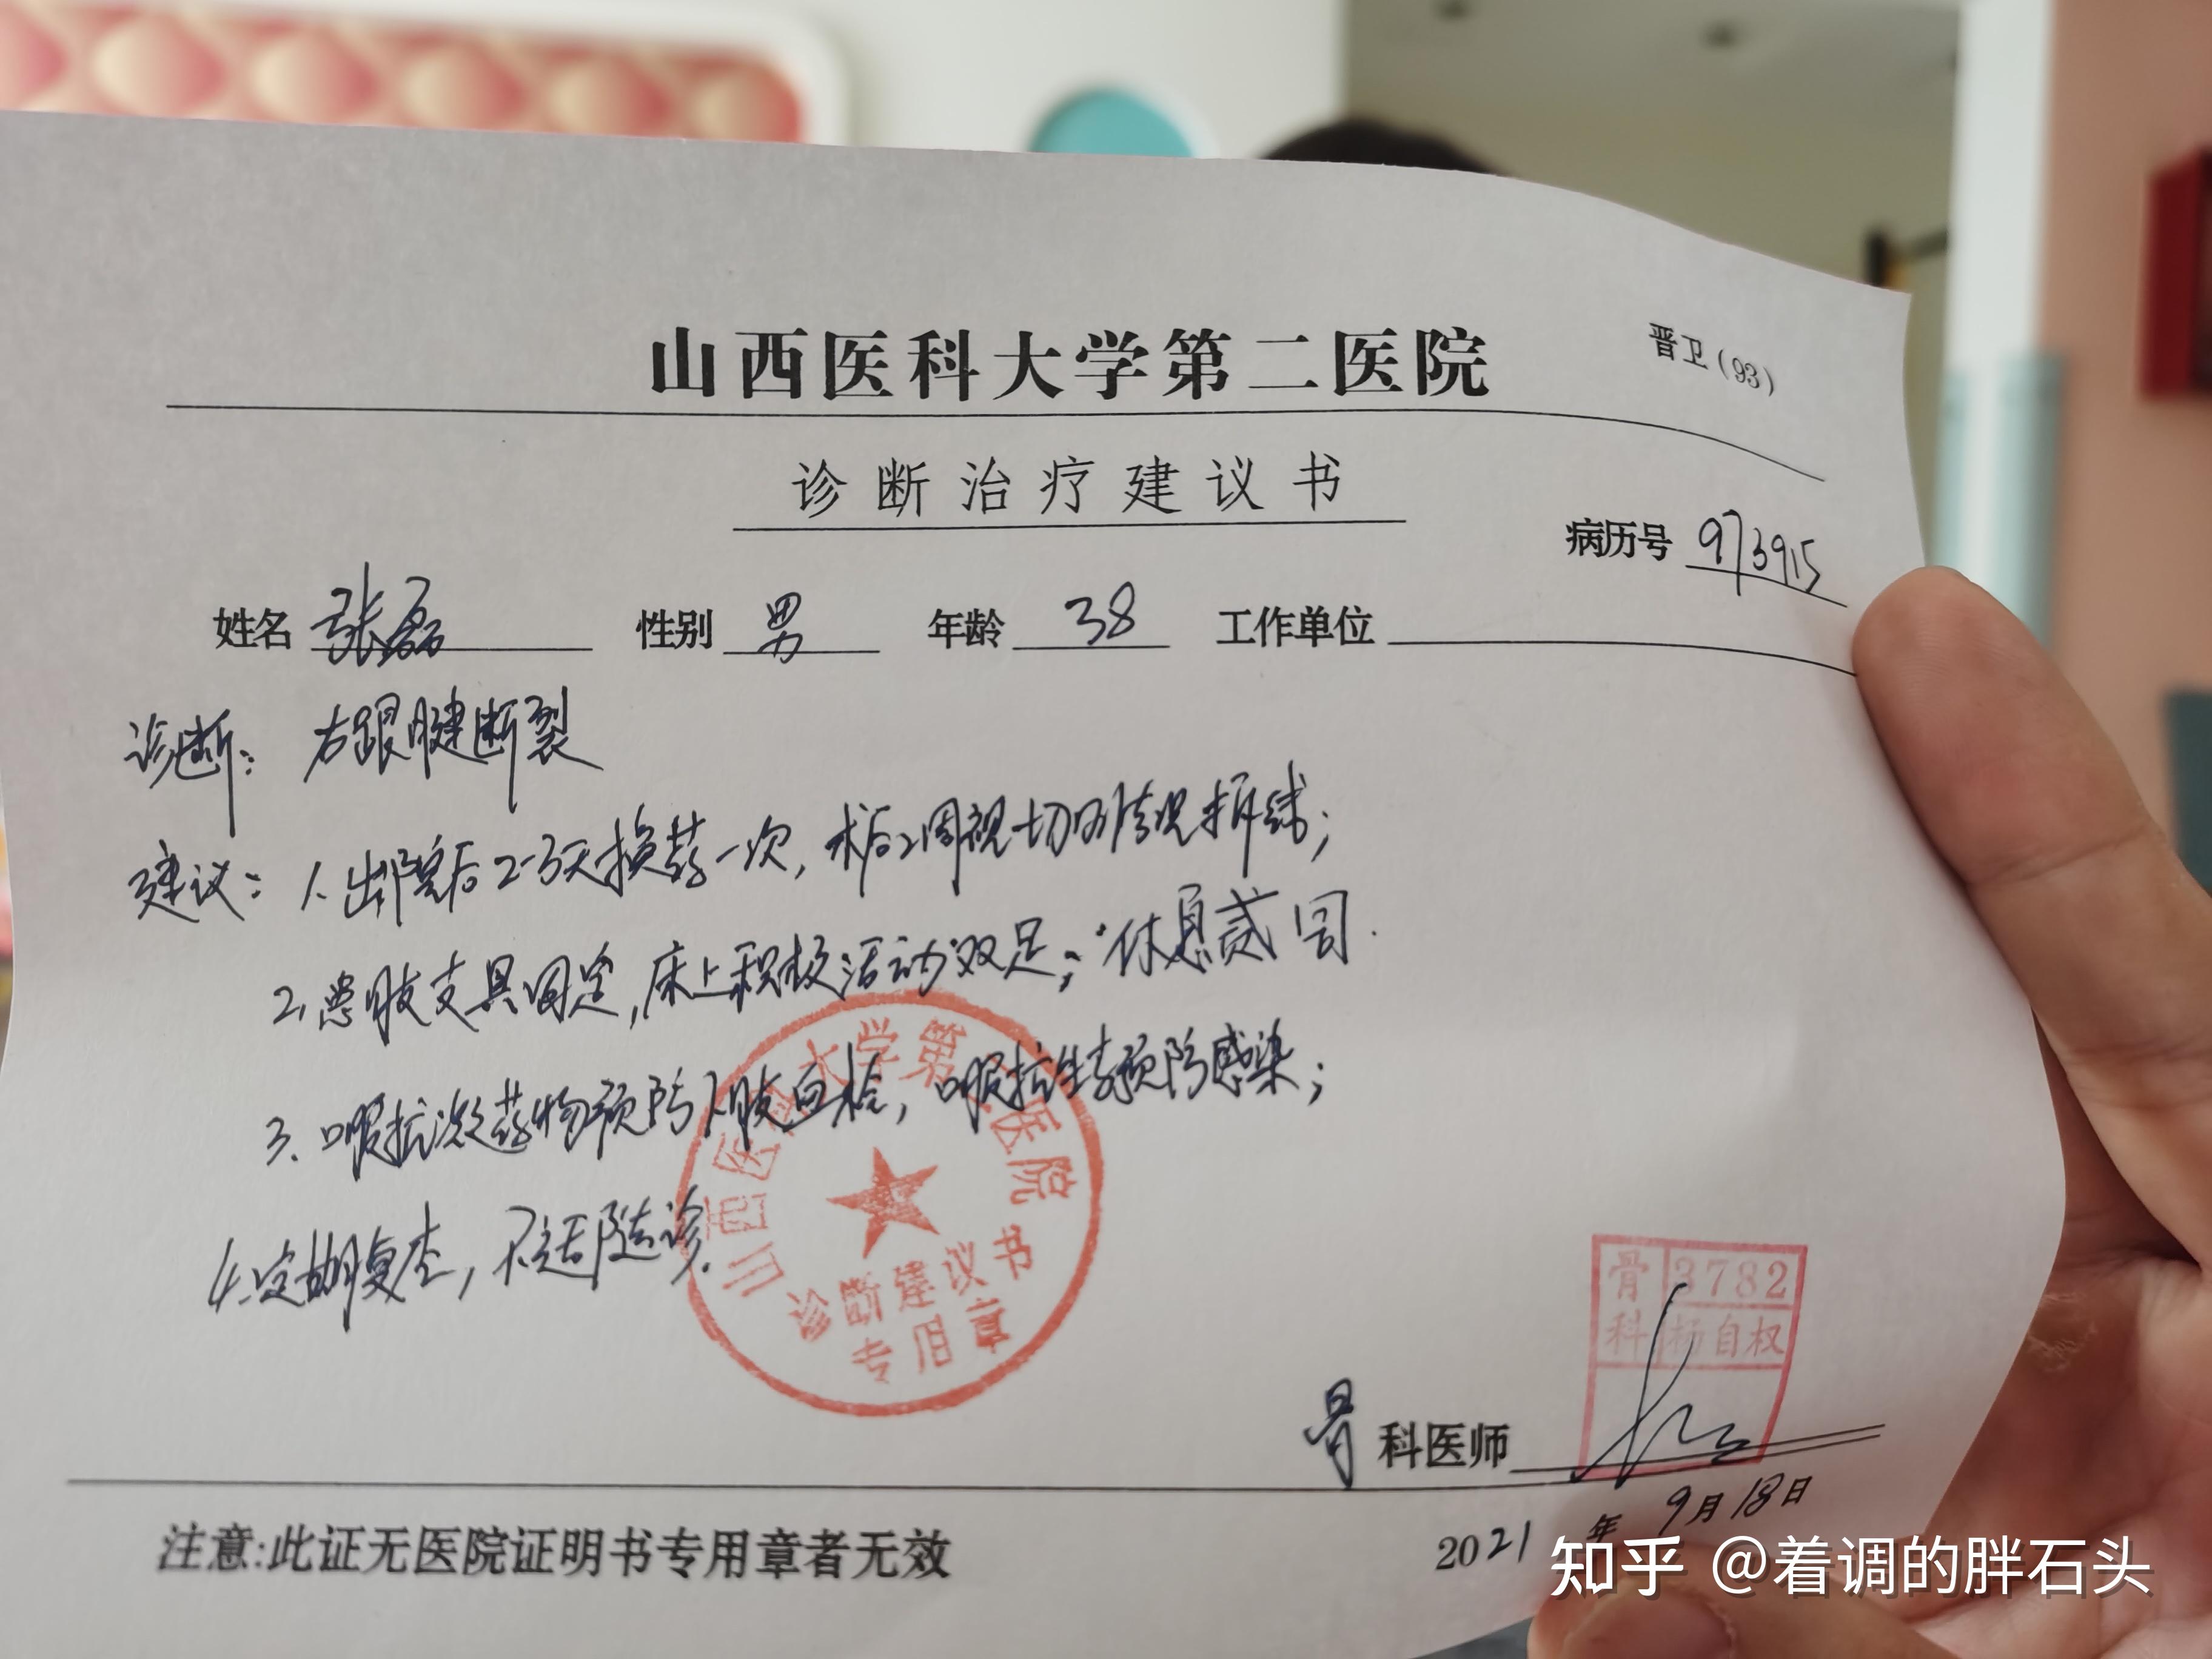 山西医科大学第二医院
晋卫(93)
诊断治疗建议书
病历号 973915
姓名 张磊 性别 男 年龄 38 工作单位
诊断: 右跟腱断裂
建议: 1.出院后2-3天换药一次,术后2周视切口情况拆线;
2.患肢支具固定,床上积极活动双足;休息贰周.
3.口服抗凝药物预防下肢血栓,口服抗生素预防感染;
4.定期复查,不适随诊.
山西医科大学第二医院
诊断建议书
专用章
骨科 3782
杨自权
骨科医师
2021年9月18日
注意:此证无医院证明书专用章者无效
知乎 @着调的胖石头